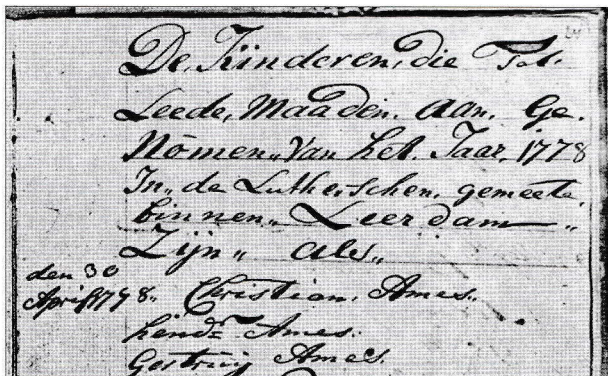 De, Kinderen, die Tot.
Leede, Maaden. aan. Ge.
Nōmen„ Van het. Jaar, 1778
In„ de Lutherschen, gemeete,
binnen„ Leerdam„
Zijn„ als„
den 30
April 1798„ Christian, Ames„
hendr Ames.
Gertruy Ames